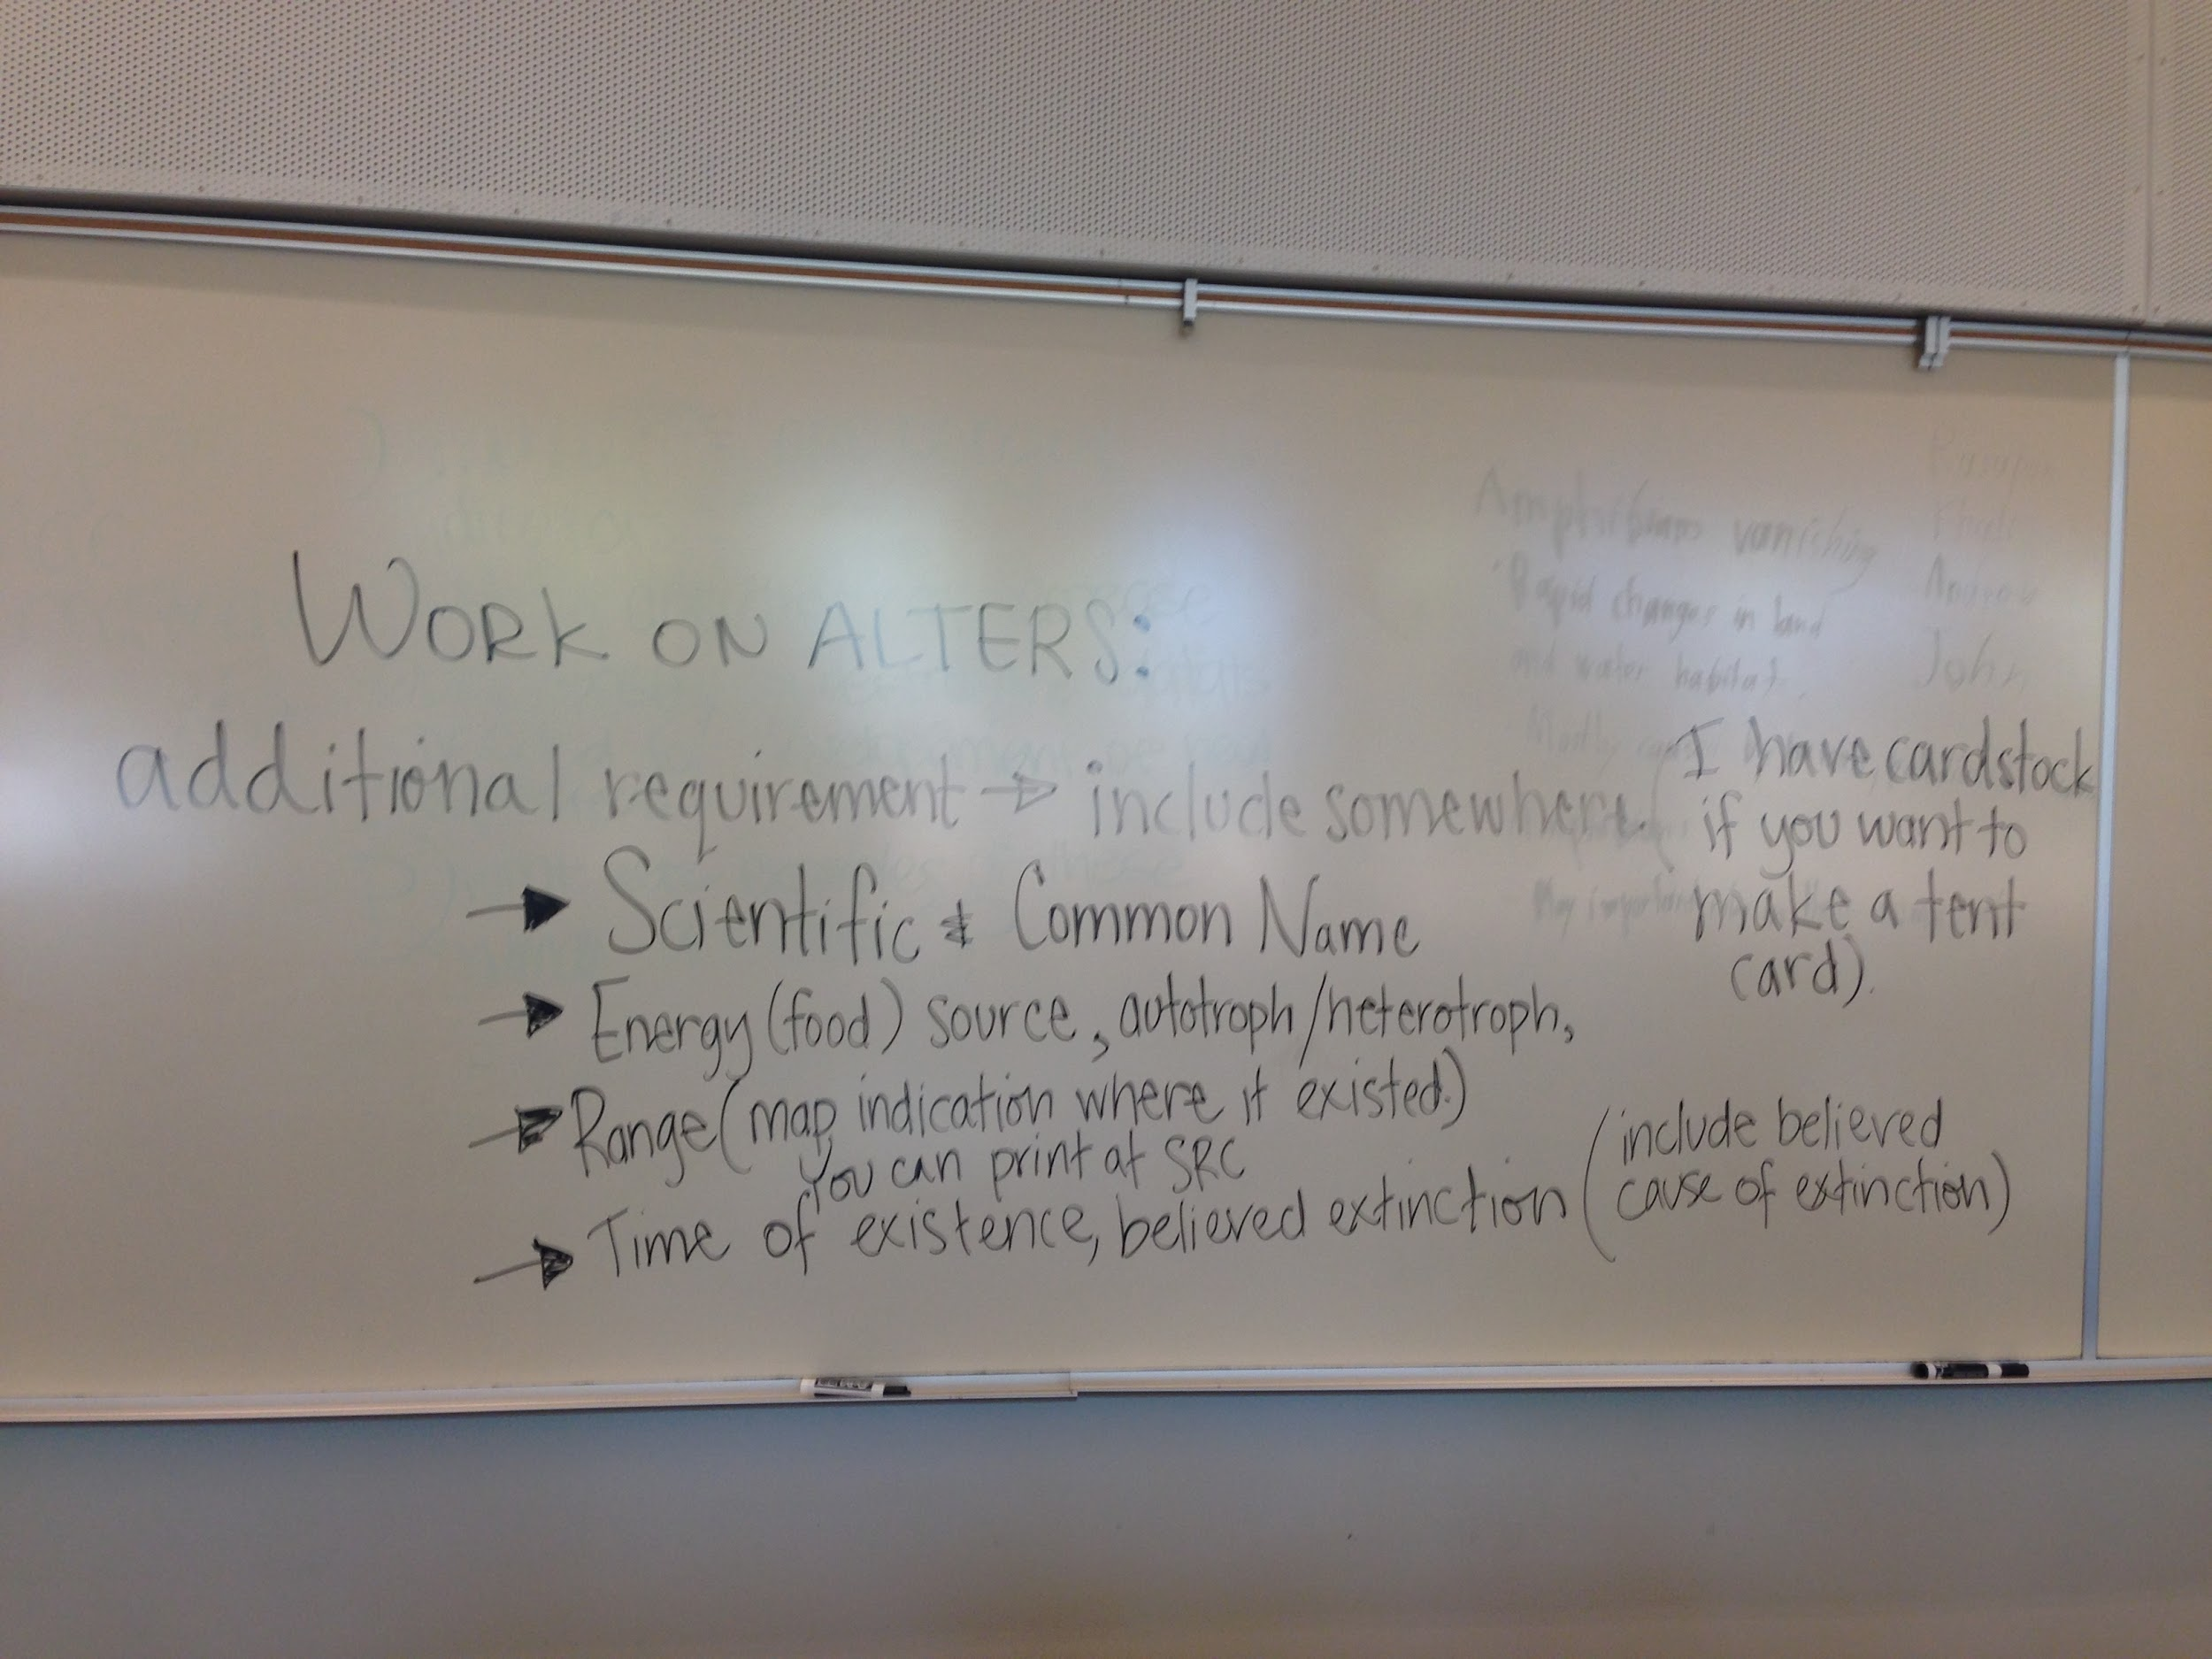 WORK ON ALTERS:
additional requirement → include somewhere. (I have cardstock
if you want to
make a tent
card).
→ Scientific & Common Name
→ Energy (food) source, autotroph/heterotroph,
→ Range (map indication where it existed.)
You can print at SRC
→ Time of existence, believed extinction (include believed
cause of extinction)
Amphibians vanishing
· Rapid changes in land
and water habitat.
John